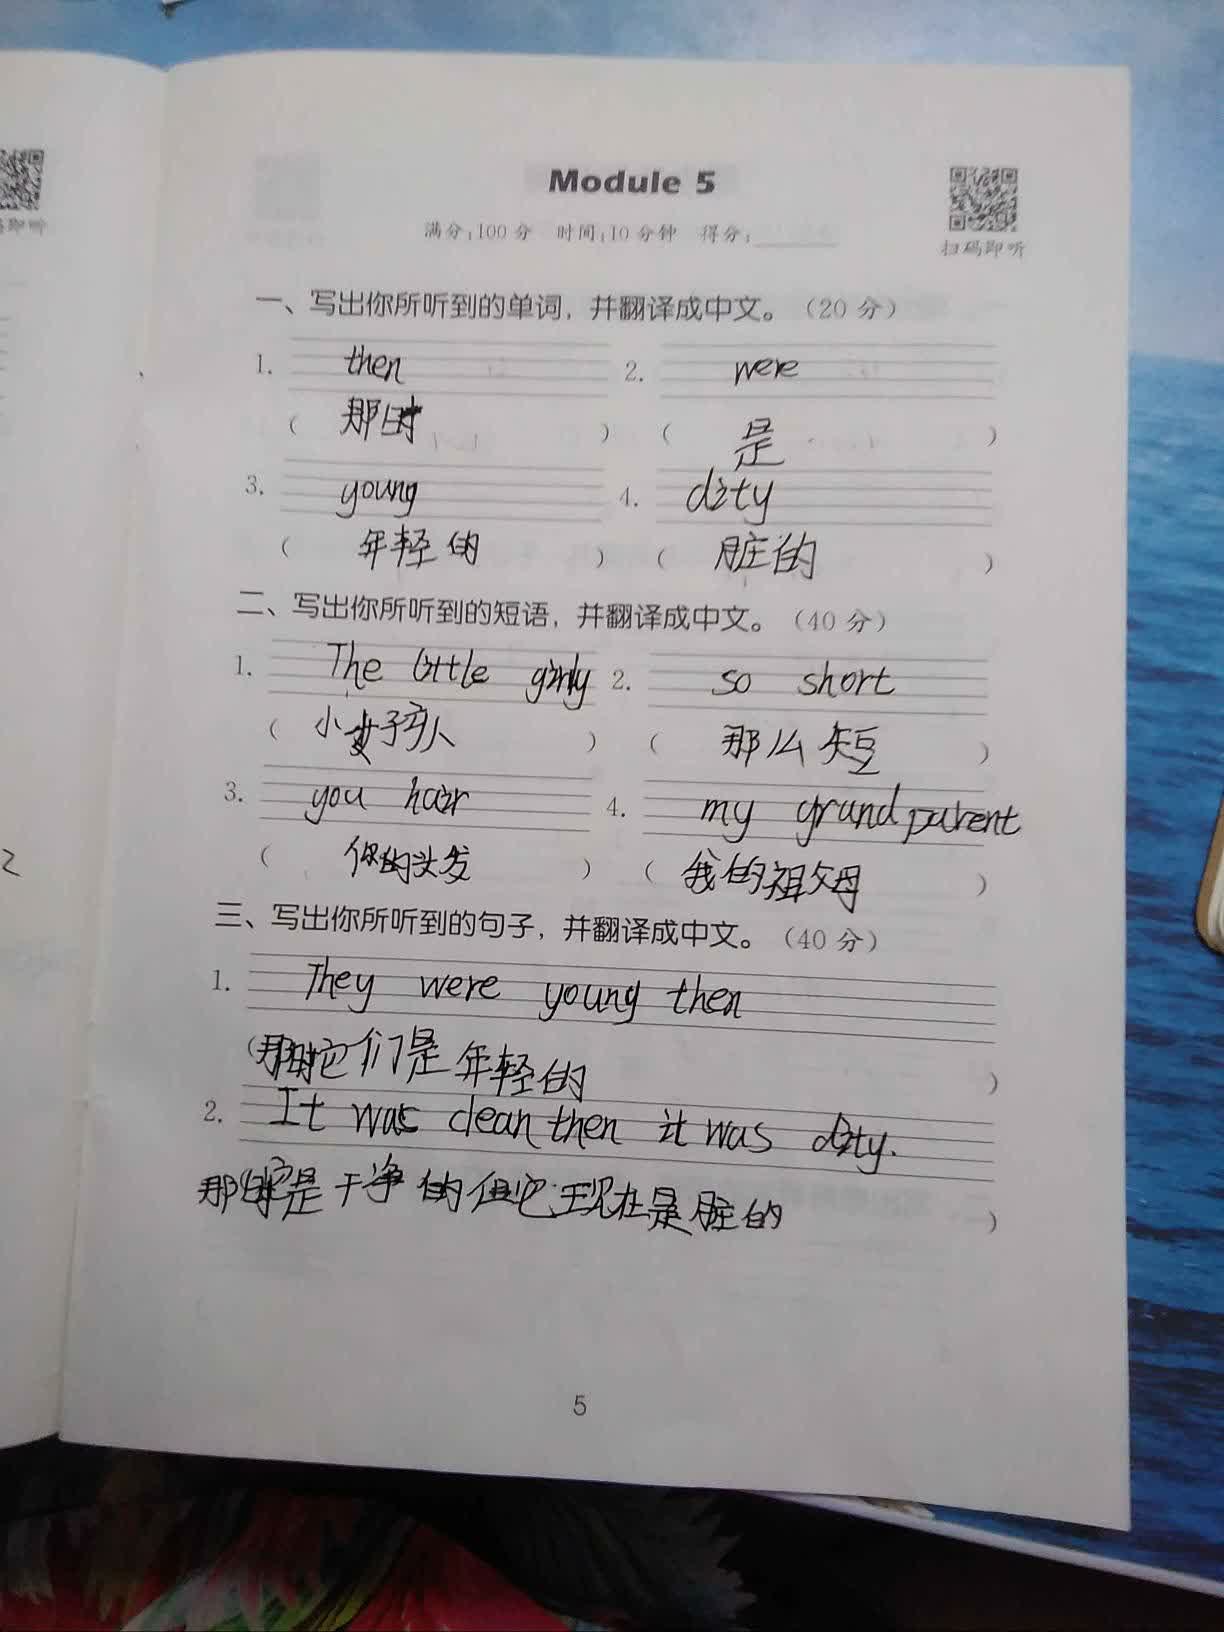 Module 5
满分:100分 时间:10分钟 得分:
扫码即听
一、写出你所听到的单词，并翻译成中文。（20分）
1. then 2. were
（那时）（是）
3. young 4. dity
（年轻的）（脏的）
二、写出你所听到的短语，并翻译成中文。（40分）
1. The little girly 2. so short
（小女孩人）（那么短）
3. you hair 4. my grandparent
（你的头发）（我的祖父母）
三、写出你所听到的句子，并翻译成中文。（40分）
1. They were young then
（那时它们是年轻的）
2. It was clean then it was dity.
那时它是干净的但它现在是脏的）
5